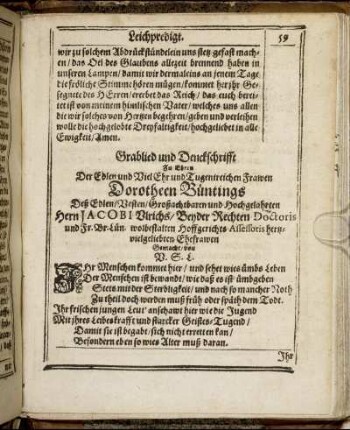 Leichpredigt. 59
wir zu solchem Abdrückstündelein uns stetz gefast mach-
en / das Oel des Glaubens allezeit brennend haben in
unseren Lampen / damit wir dermaleins an jenem Tage
die frölicht Stimme hören mügen / kommet her jhr Ge-
segnete des HErren / ererbet das Reich / das euch berei-
tet ist von meinem himlischen Vater / welches uns allen
die wir solches von Hertzen begehren / geben und verleihen
wolle die hochgelobte Dreyfaltigkeit / hochgeliebet in alle
Ewigkeit / Amen.
Grablied und Denckschrifft
Zu Ehren
Der Edlen und Viel Ehr und Tugentreichen Frawen
Dorotheen Büntings
Deß Edlen / Vesten / Großachtbaren und Hochgelahrten
Hern JACOBI Vlrichs / Beyder Rechten Doctoris
und Fr. Br. Lün. wolbestalten Hoffgerichts Assessoris hertz-
vielgeliebten Ehefrawen
Gemacht / von
P. S. L.
IHr Menschen kommet hier / und sehet wies ümbs Leben
Der Menschen ist bewandt / wie daß es ist ümbgeben
Stets mit der Sterbligkeit / und nach so mancher Noth
Zu theil doch werden muß früh oder späth dem Todt.
Ihr frischen jungen Leut' anschawt hier wie die Jugend
Mit jhres Leibes krafft und starcker Geistes / Tugend /
Damit sie ist begabt / sich nicht erretten kan /
Besondern eben so wies Alter muß daran.
Ihr